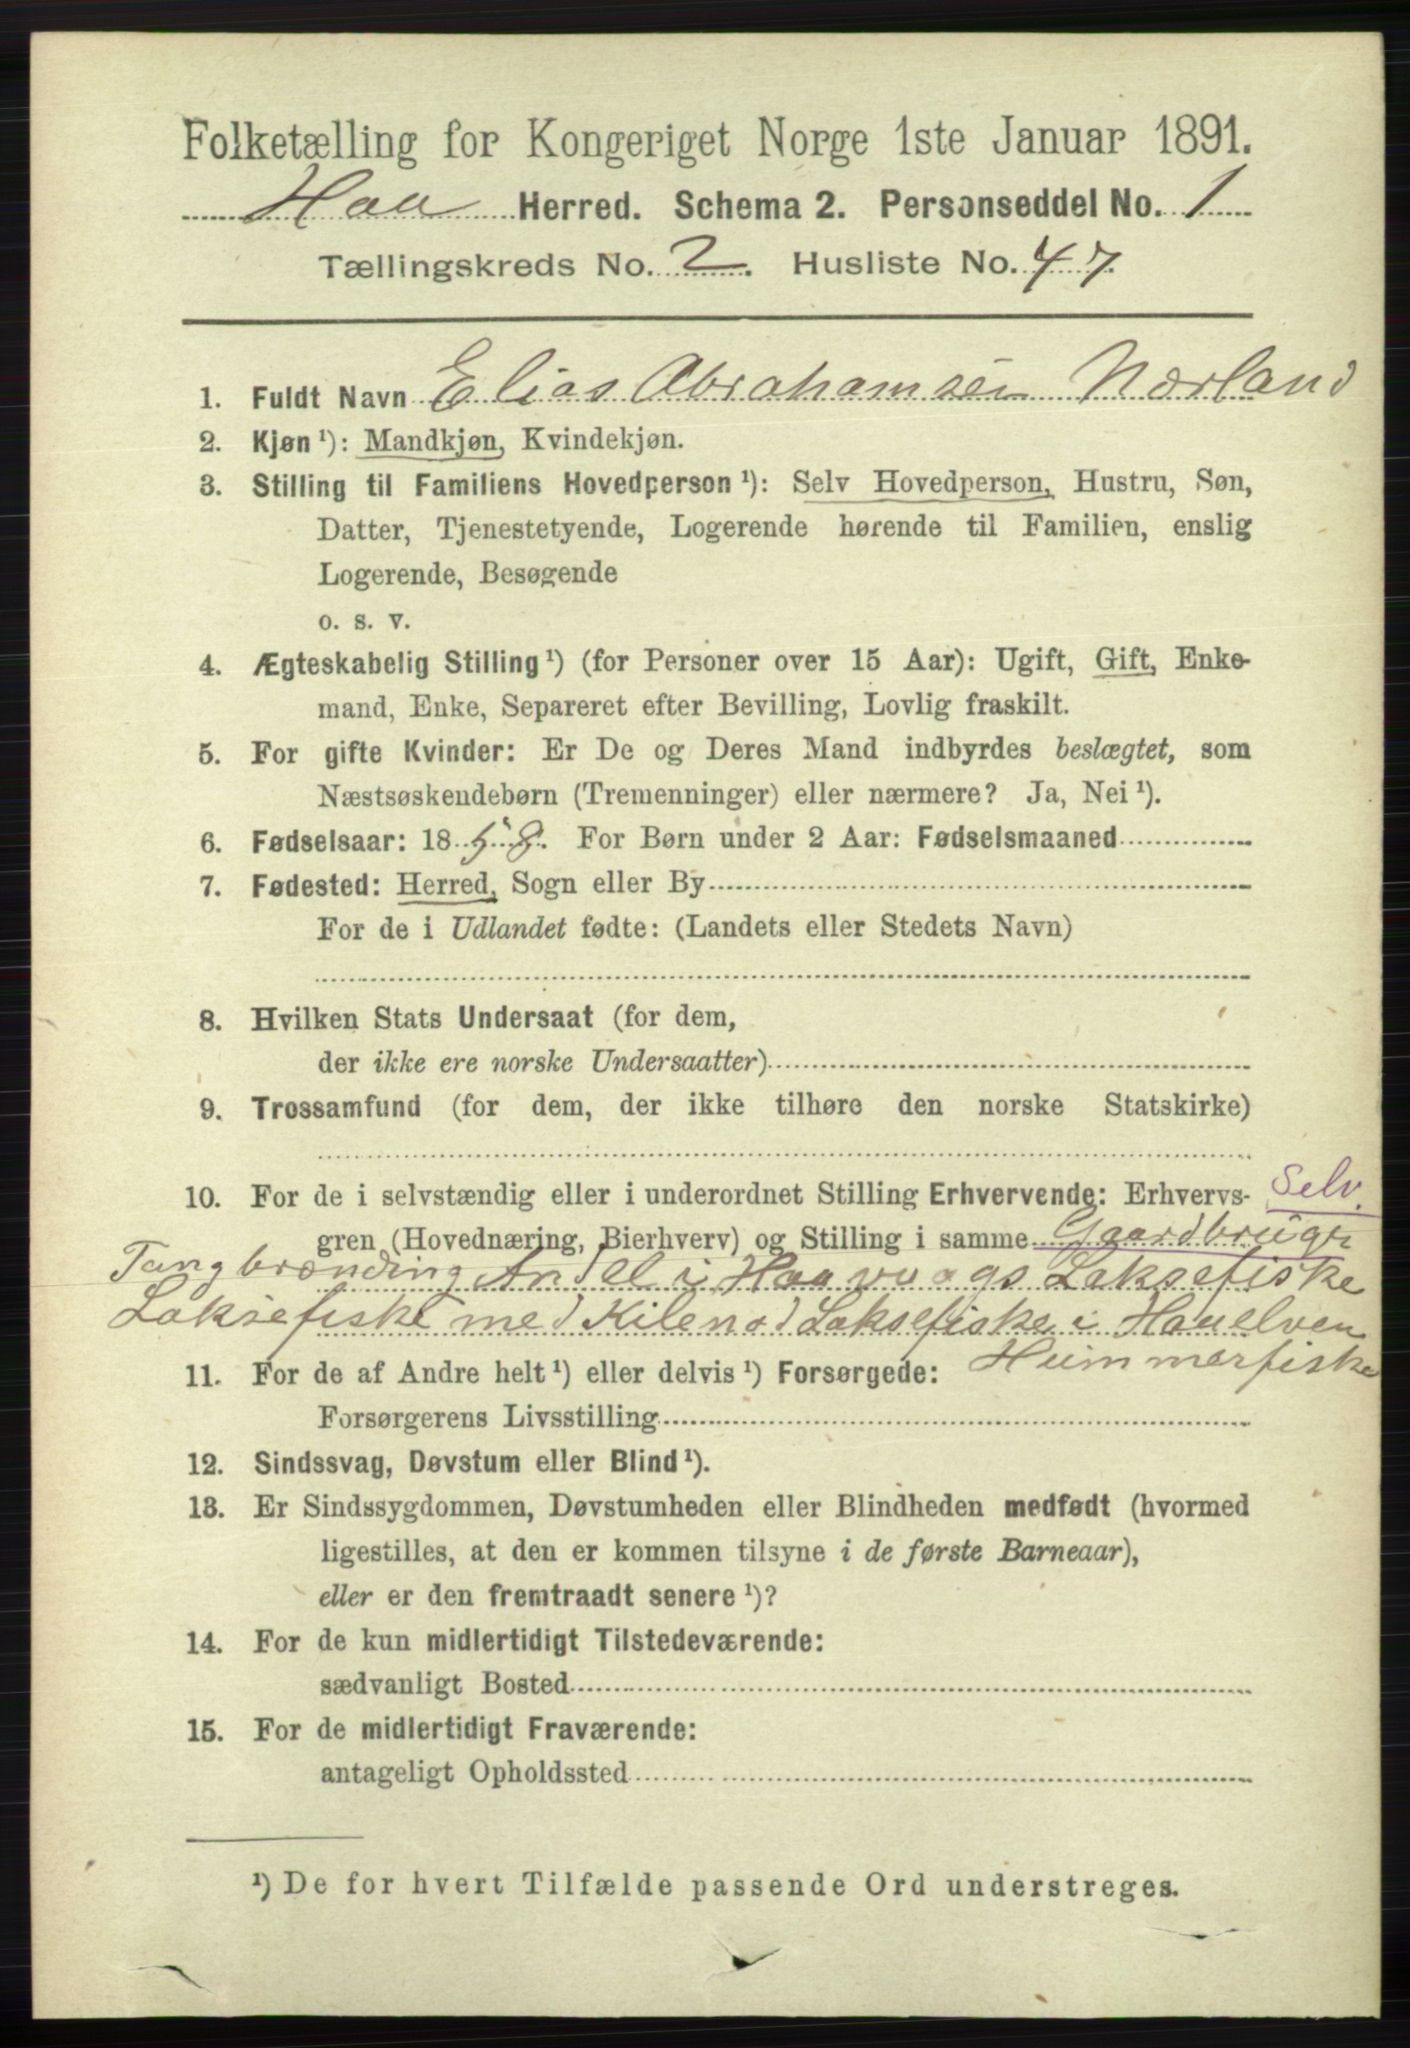 Folketælling for Kongeriget Norge 1ste Januar 1891.
Haa Herred. Schema 2. Personseddel No. 1
Tællingskreds No. 2. Husliste No. 47.
1. Fuldt Navn Elias Abrahamsen Nærland
2. Kjøn ¹): Mandkjøn, Kvindekjøn.
3. Stilling til Familiens Hovedperson ¹): Selv Hovedperson, Hustru, Søn,
Datter, Tjenestetyende, Logerende hørende til Familien, enslig
Logerende, Besøgende
o. s. v.
4. Ægteskabelig Stilling ¹) (for Personer over 15 Aar): Ugift, Gift, Enke-
mand, Enke, Separeret efter Bevilling, Lovlig fraskilt.
5. For gifte Kvinder: Er De og Deres Mand indbyrdes beslægtet, som
Næstsøskendebørn (Tremenninger) eller nærmere? Ja, Nei ¹).
6. Fødselsaar: 1858. For Børn under 2 Aar: Fødselsmaaned
7. Fødested: Herred, Sogn eller By
For de i Udlandet fødte: (Landets eller Stedets Navn)
8. Hvilken Stats Undersaat (for dem,
der ikke ere norske Undersaatter)
9. Trossamfund (for dem, der ikke tilhøre den norske Statskirke)
10. For de i selvstændig eller i underordnet Stilling Erhvervende: Erhvervs- Selv.
gren (Hovednæring, Bierhverv) og Stilling i samme Gaardbruger
Tangbrænding Andel i Haavaags Laksefiske
Laksefiske med Kilenod Laksefiske i Haaelven
Hummerfiske
11. For de af Andre helt ¹) eller delvis ¹) Forsørgede:
Forsørgerens Livsstilling
12. Sindssvag, Døvstum eller Blind ¹).
13. Er Sindssygdommen, Døvstumheden eller Blindheden medfødt (hvormed
ligestilles, at den er kommen tilsyne i de første Barneaar),
eller er den fremtraadt senere ¹)?
14. For de kun midlertidigt Tilstedeværende:
sædvanligt Bosted
15. For de midlertidigt Fraværende:
antageligt Opholdssted
¹) De for hvert Tilfælde passende Ord understreges.